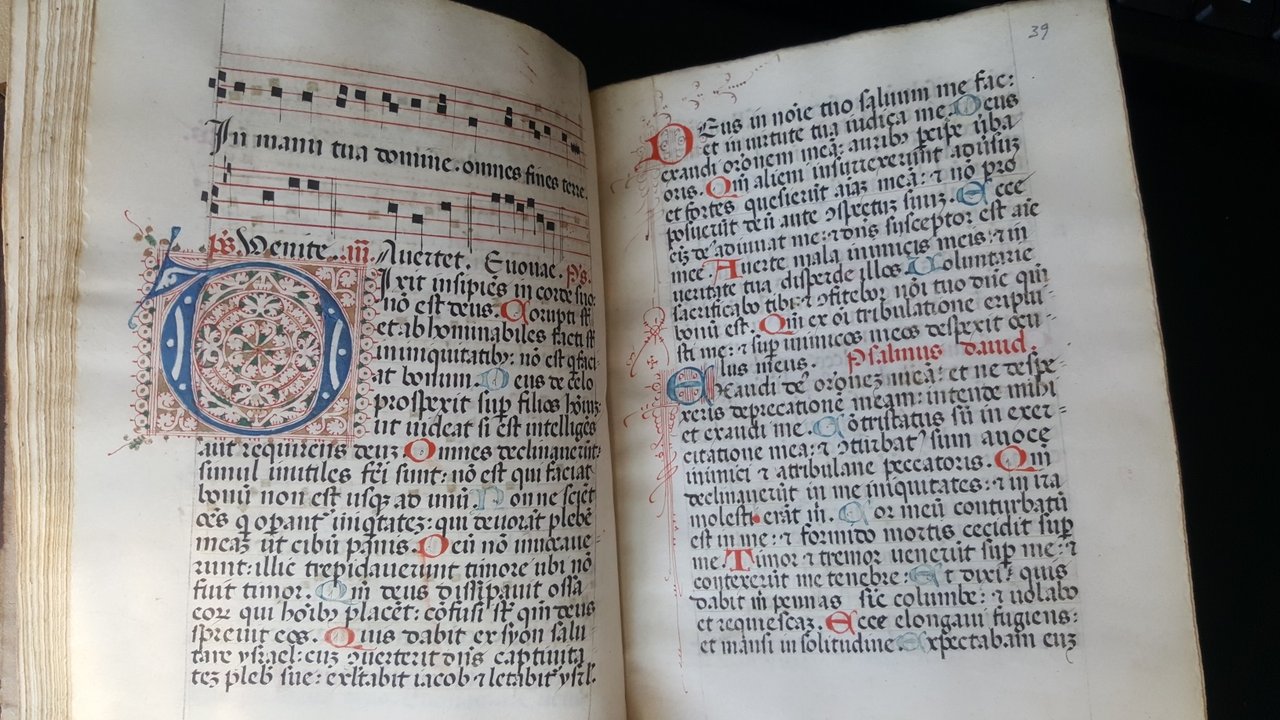 In manu tua domine. omnes fines terre.
ps Venite. iii. Auertet. Euouae. Ps.
Dixit insipiẽs in corde suo:
nõ est deus. Corrupti st̃
et abhominabiles facti st̃
in iniquitatibꝫ: nõ est q̃ faci
at bonum. Deus de celo
prospexit sup̃ filios hoĩm:
ut uideat si est intelligẽs
aut requirens deuꝫ. Omnes declinauerũt:
simul inutiles fc̃i sunt: nõ est qui faciat
bonũ non est usqꝫ ad unũ. Nonne sciẽt
oẽs q̃ operant̃ iniq̃tateꝫ: qui deuorãt plebẽ
meaꝫ ut cibũ pãnis. Deũ nõ inuocaue
runt: illic trepidauerunt timore ubi nõ
fuit timor. Qm̃ deus dissipauit ossa
eoꝝ qui hoĩbꝫ placẽt: cõfusi st̃ qm̃ deus
spreuit eos. Quis dabit ex syon salu
tare ysrael: cuꝫ ꝯuerterit dñs captiuita
teꝫ pleb̃ sue: exl̃tabit iacob ⁊ letabit̃ ysrl̃.
39
Deus in noĩe tuo saluum me fac:
et in uirtute tua iudica me. Deus
exaudi orõnem meã: auribꝫ percipe uerba
oris. Qm̃ alieni insurrexerunt aduersuꝫ
et fortes quesierũt aĩaꝫ meã: ⁊ nõ pro
posuerũt deũ ante ꝯspectuꝫ suuꝫ. Ecce
eĩꝫ de adiuuat me: ⁊ dñs susceptor est aĩe
mee. Auerte mala inimicis meis: ⁊ in
ueritate tua disperde illos. Voluntarie
sacrificabo tibi: ⁊ ꝯfitebor nõi tuo dñe qm̃
bonũ est. Qm̃ ex oĩ tribulatione eripui
sti me: ⁊ sup̃ inimicos meos despexit ocu
lus meus. Psalmus dauid.
Exaudi de orõneꝫ meã: et ne despe
xeris deprecationẽ meam: intende mihi
et exaudi me. Cõtristatus sũ in exer
citatione mea: ⁊ ꝯturbat᷒ sum a uoce
inimici ⁊ a tribulatione peccatoris. Qm̃
declinauerũt in me iniquitates: ⁊ in ira
molesti erãt m̃. Cor meũ conturbatũ
est in me: ⁊ formido mortis cecidit sup̃
me. Timor ⁊ tremor uenerũt sup̃ me: ⁊
contexerũt me tenebre: Et dixi: quis
dabit m̃ pennas sic̃ columbe: ⁊ uolabo
et requiescaꝫ. Ecce elongaui fugiens:
et mãnsi in solitudine. Expectabam euꝫ